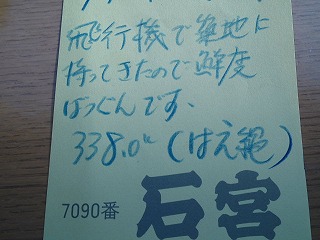 飛行機で築地に
持ってきたので鮮度
ばっぐんです、
338.0k (はえ縄)
7090番 石宮